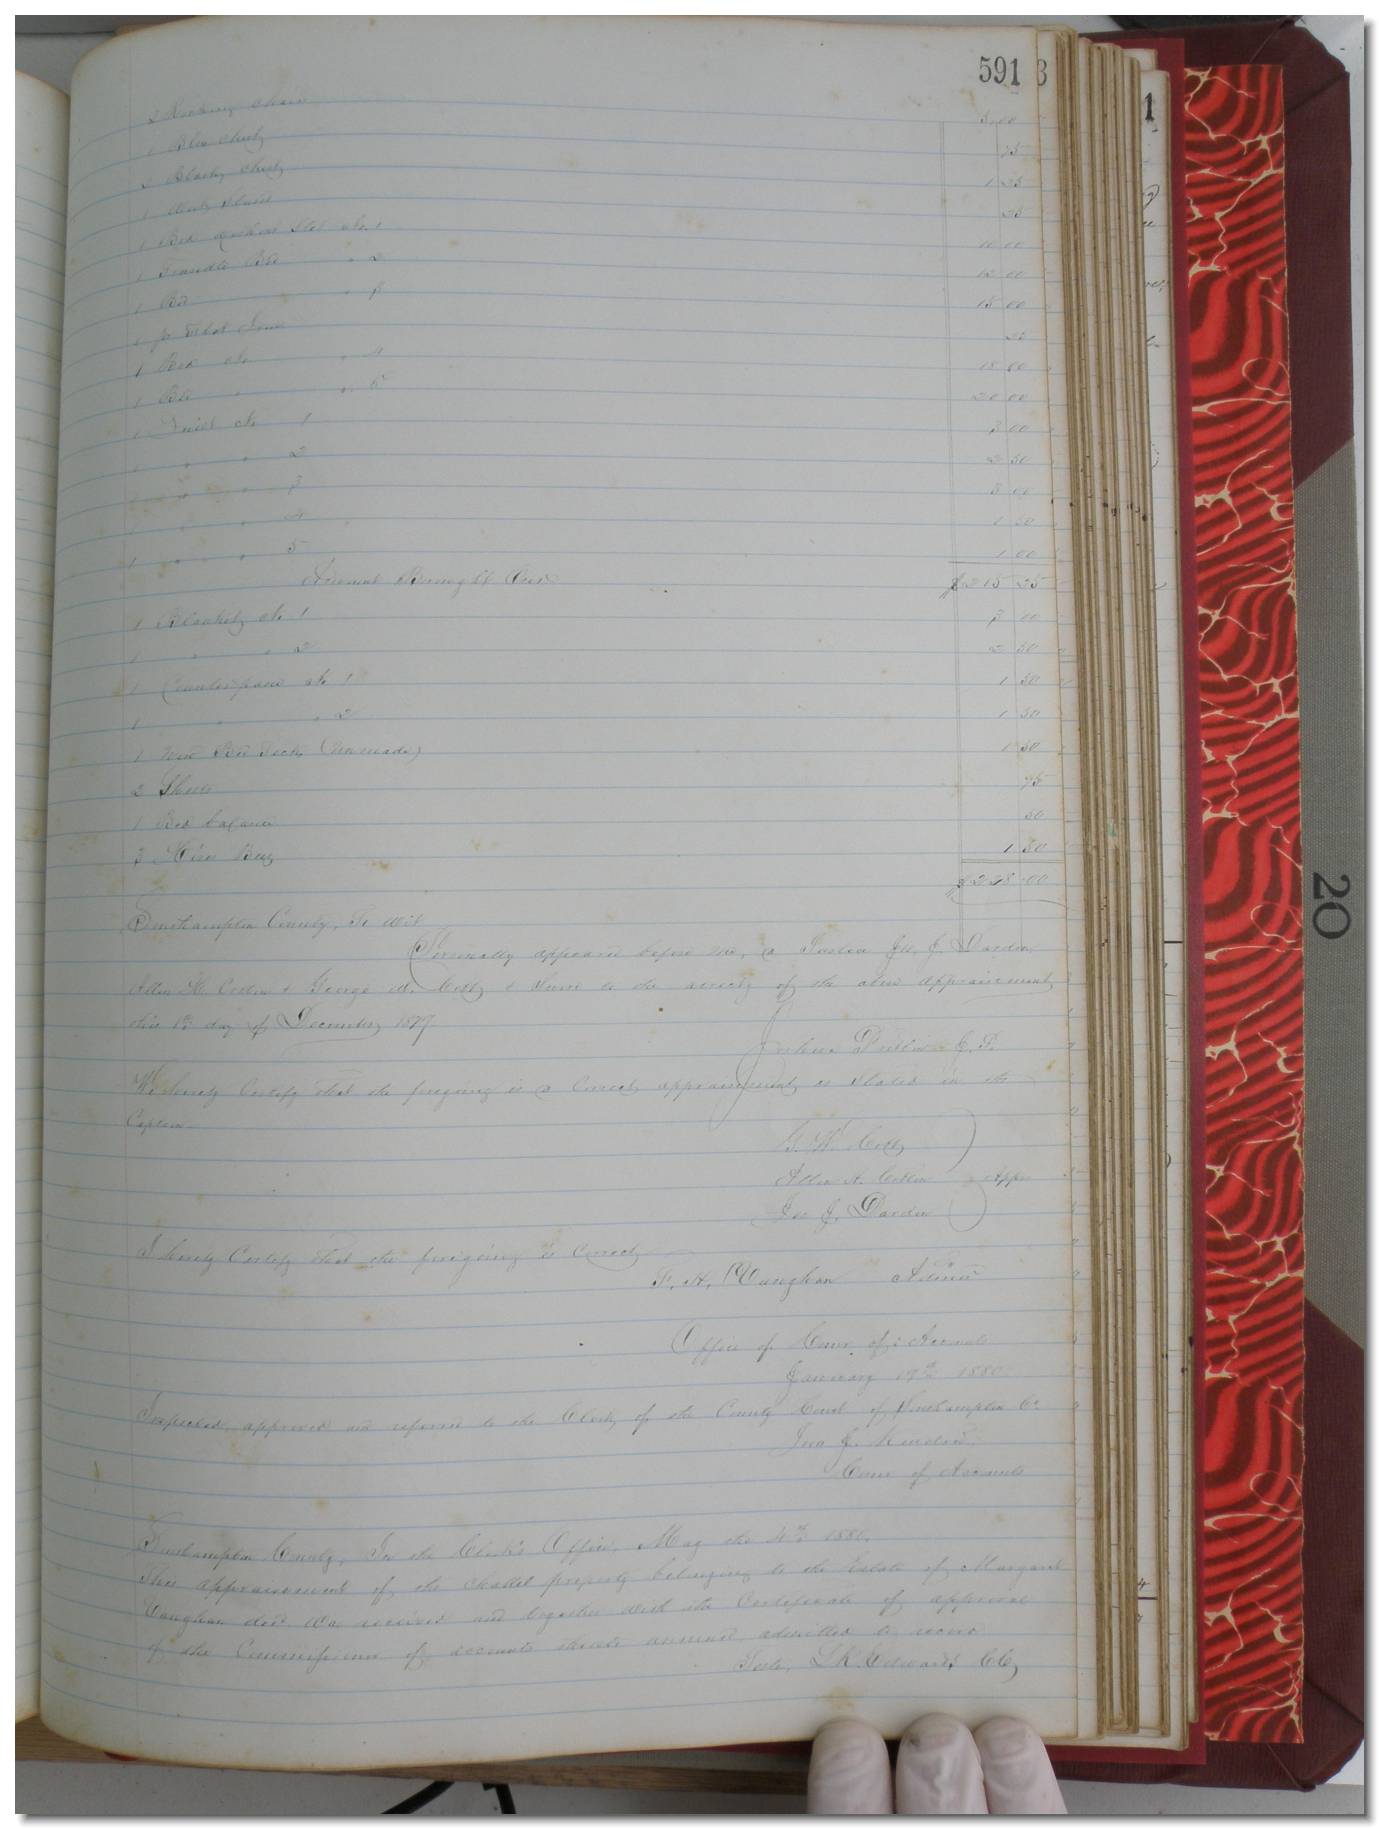 591
2 Rocking chairs 5 00
1 Blue chest 75
2 Black chests 1 25
1 Stand 25
1 Bed Stet No. 1 10 00
1 Trundle Bed " 2 12 00
1 Bed " 3 15 00
1 pr Flat Irons 25
1 Bed No " 4 18 00
1 Bed " " 5 20 00
1 Quilt No 1 3 00
1 " " 2 2 50
1 " " 3 3 00
1 " " 4 1 50
1 " " 5 1 00
Amount Brought Over $215 25
1 Blankets No 1 3 00
1 " " 2 2 50
1 Counterpane No 1 1 50
1 " " 2 1 50
1 New Bed Tick (Unmade) 1 50
2 Sheets 75
1 Bed 50
3 Bees 1 50
$228 00
Southampton County, To Wit
Personally appeared before me, a Justice Jno. J. Darden
& George W. & Swore to the of the above appraisement
this 1st day of December 1879
Joshua J. P.
We hereby Certify that the foregoing is a Correct appraisement as Stated in the
Caption
G. W.
Appr
Jno J. Darden
I hereby Certify that the foregoing is Correct
F. H. Vaughan Admr
Office of Comr of Accounts
January 19th 1880
Inspected, approved and referred to the Clerk of the County Court of Southampton Co
Jno J.
Comr of Accounts
Southampton County, In the Clerk's Office, May the 4th 1880.
This appraisement of the chattel property belonging to the Estate of Margaret
Vaughan decd was received and together with the Certificate of approval
of the Commissioner of accounts thereto annexed admitted to record
Teste, L R Edwards CC
20